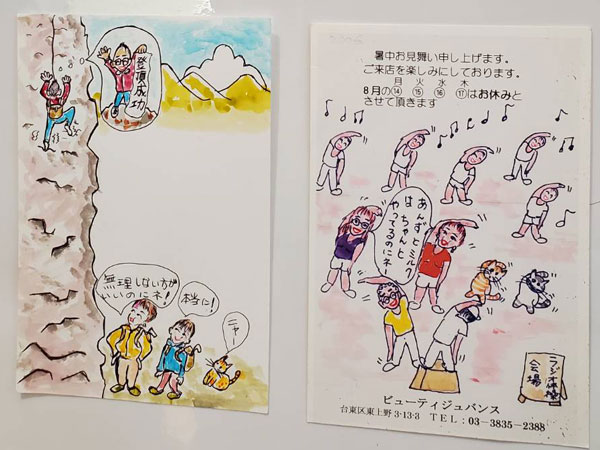 登頂成功
無理しない方が
いいのにネ!
本当に!
ニャー
暑中お見舞い申し上げます。
ご来店を楽しみにしております。
月 火 水 木
8月の⑭ ⑮ ⑯ ⑰はお休みと
させて頂きます
あんずとミルク
はちゃんと
やってるのにネー
ラジオ体操
会場
ビューティジュバンス
台東区東上野3-13-3 TEL:03-3835-2388